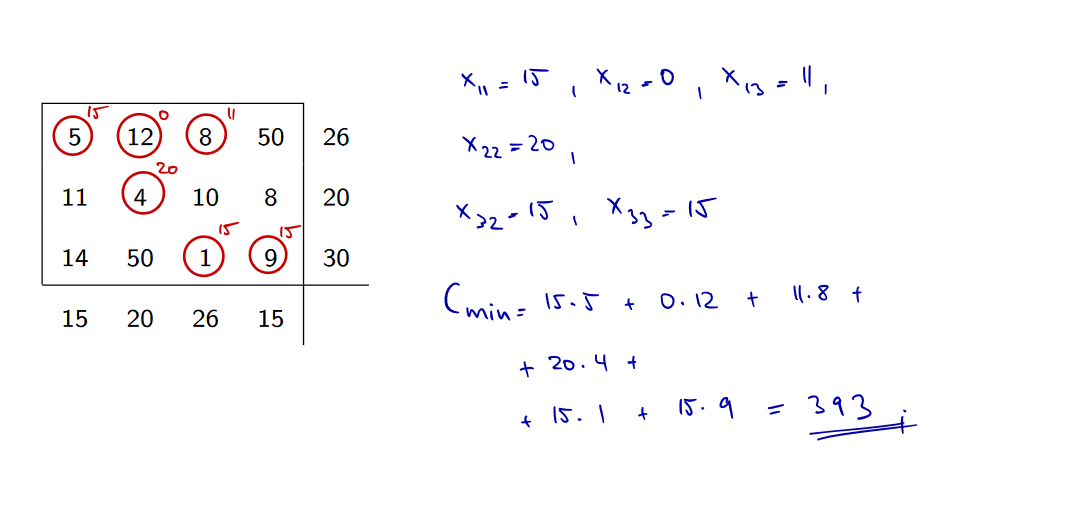 15 0 11
5 12 8 50 26
20
11 4 10 8 20
15 15
14 50 1 9 30
15 20 26 15
x₁₁ = 15 , x₁₂ = 0 , x₁₃ = 11 ,
x₂₂ = 20 ,
x₃₂ = 15 , x₃₃ = 15
Cmin = 15·5 + 0·12 + 11·8 +
+ 20·4 +
+ 15·1 + 15·9 = 393 ;